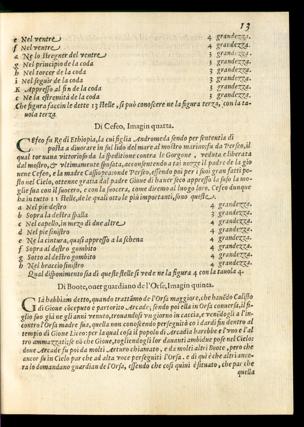 13
e Nel ventre 4 grandezza.
f Nel ventre 4 grandezza.
a Ne lo stregner del ventre 4 grandezza.
g Nel principio de la coda 4 grandezza.
h Nel torcer de la coda 4 grandezza.
i Nel seguir de la coda 4 grandezza.
K Appresso al fin de la coda 4 grandezza.
c Ne la estremità de la coda 4 grandezza.
Che figura faccin le dette 13 stelle, si può conoscere ne la figura terza, con la ta-
uola terza
Di Cefeo, Imagin quarta.
CEfeo fu Re di Ethiopia, la cui figlia Andromeda sendo per sententia di
posta a diuorare in sul lido del mare al mostro marino; fu da Perseo, il
qual tornaua vittorioso da la speditione contra le Gorgone, veduta e liberata
dal mostro, & vltimamente sposata, acconsentendo a tai nozze il padre de la gio
uene Cefeo, e la madre Cassiopea: onde Perseo, essendo poi per i suoi gran fatti po-
sto nel Cielo, ottenne gratia dal padre Gioue di hauer seco appresso la sua mo-
glie sua con il suocero, e con la suocera, come diremo al luogo loro. Cefeo dunque
ha in tutto 11 stelle, de le quali otto le più importanti, sono queste.
a Nel piè destro 4 grandezza.
b Sopra la destra spalla 3 grandezza.
c Nel capello, in mezo di due altre 4 grandezza.
d Nel piè sinistro 4 grandezza.
e Ne la cintura, quasi appresso a la schena 4 grandezza.
f Sopra al gombito destro 4 grandezza.
g Sotto al gombito destro 4 grandezza.
h Nel braccio sinistro 4 grandezza.
Qual disponimento sia di queste stelle si vede ne la figura 4 con la tauola 4.
Di Boote, ouer guardiano de l'Orse, Imagin quinta.
GIà habbiam detto, quando trattãmo de l'Orsa maggiore, che hauẽdo Calisto
di Gioue cõcepeto e partorito Arcade; sendo poi ella in Orsa conuersa, il fi-
glio suo già ne gli anni venuto, trouandosi vn giorno in caccia, e venẽdogli a l'in-
contro l'Orsa madre sua, quella non conoscendo perseguitò co i dardi fin dentro al
tempio di Gione Liceo:
tro ammazzati; se nõ che Gioue, togliendogli lor duanti ambidue pose nel Cielo:
doue Arcade fu poi da molti Arturo chiamato, e da molti altri Boote, pero che
ancor fu in Ciel par che ad alta voce perseguiti l'Orsa. e di quì è che altri anco-
ra lo domandano guardian de l'Orsa, essendo che così quiui è situato, che par che
quella